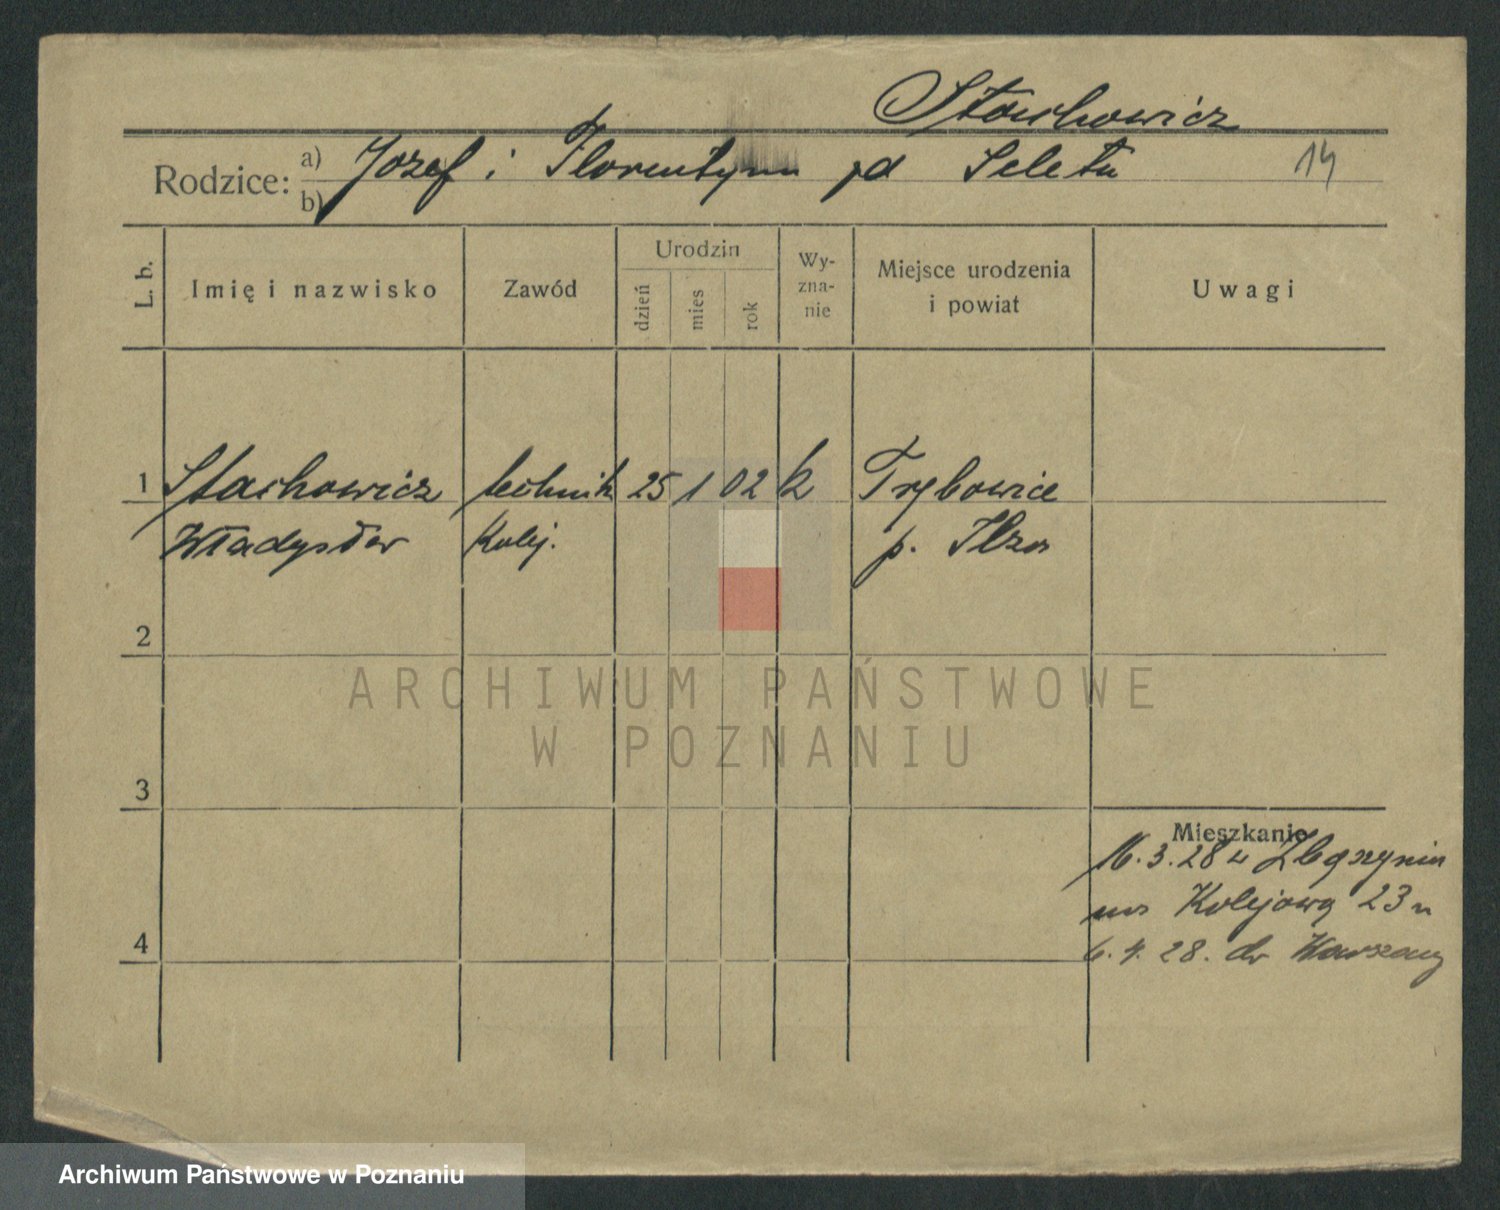 Stachowicz
Rodzice: a) Józef i Florentyna zd Seleta 14
b)
L. b. Imię i nazwisko Zawód Urodzin dzień mies rok Wy-zna-nie Miejsce urodzenia i powiat Uwagi
1 Stachowicz technik 25 1 02 k Trębowice
Władysław Kolej. p. Iłża
2
ARCHIWUM PAŃSTWOWE
W POZNANIU
3
Mieszkanie
16.3.28 z Zbąszynia
na Kolejową 23
4 6.4.28. do Warszawy
Archiwum Państwowe w Poznaniu